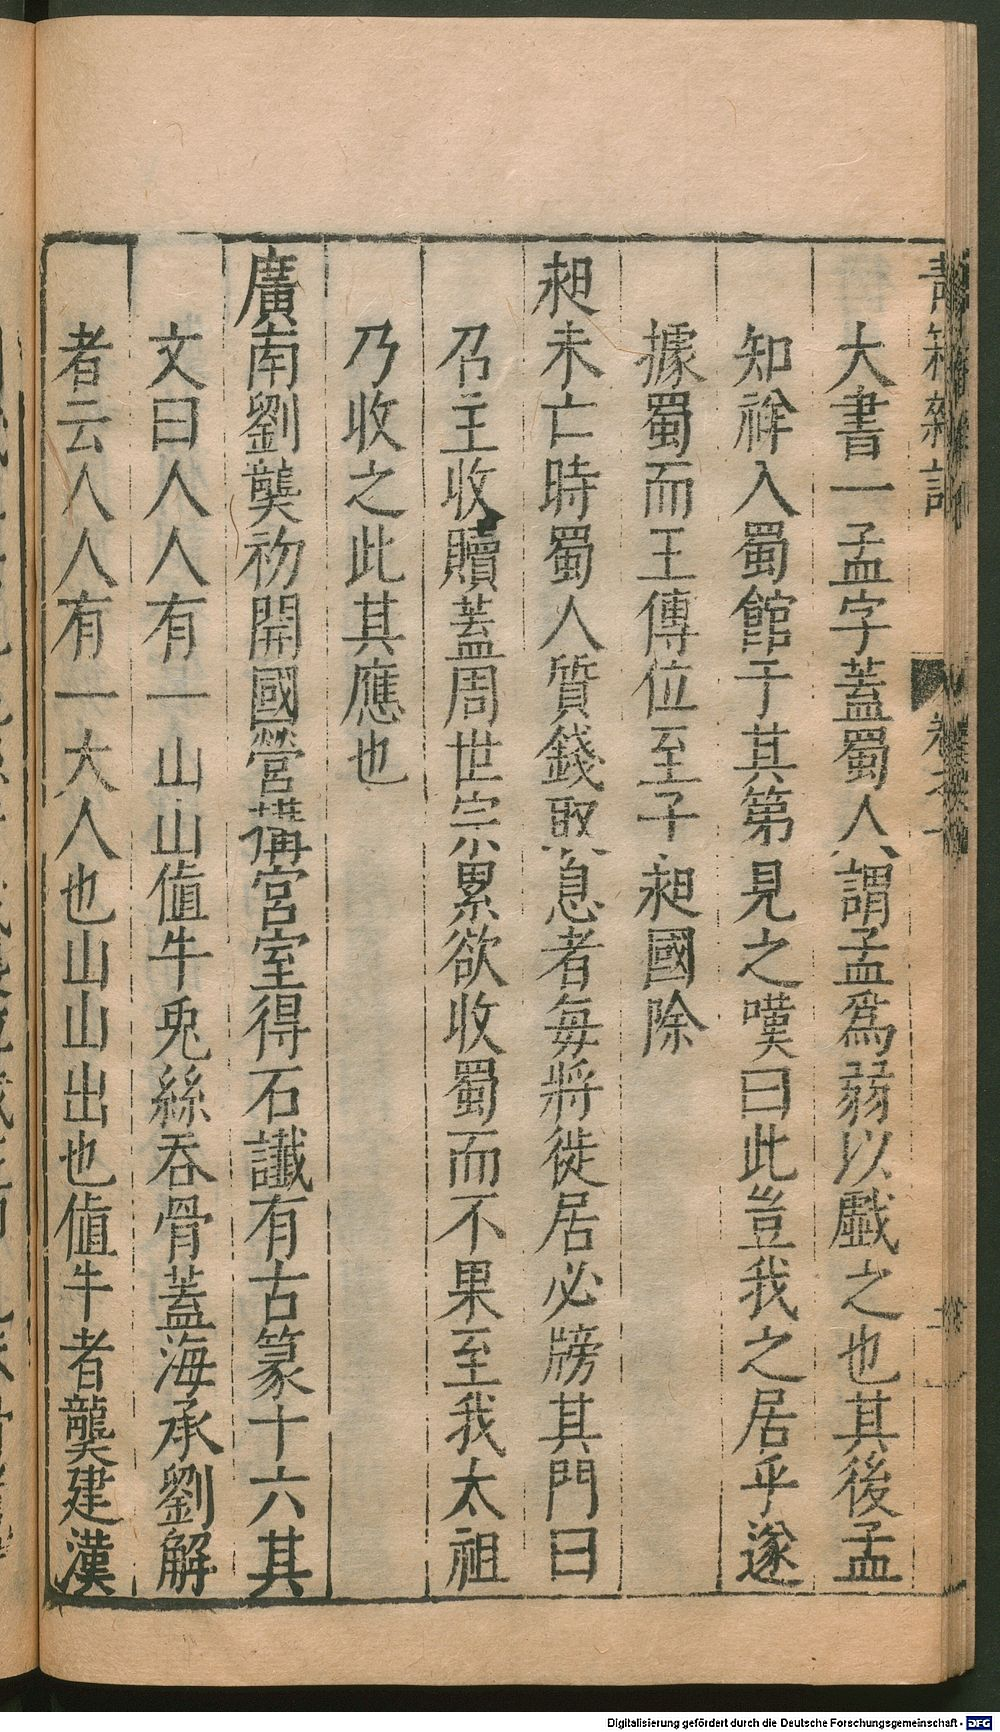 大書一孟字蓋蜀人謂孟爲弱以戲之也其後孟
知祥入蜀館于其第見之嘆曰此豈我之居乎遂
據蜀而王傳位至子昶國除
昶未亡時蜀人質錢取息者每將徙居必牓其門曰
召主收贖蓋周世宗累欲收蜀而不果至我太祖
乃收之此其應也
廣南劉龑初開國營構宮室得石讖有古篆十六其
文曰人人有一山山值牛兎絲吞骨蓋海承劉解
者云人人有一大人也山山出也値牛者龑建漢
Digitalisierung gefördert durch die Deutsche Forschungsgemeinschaft - DFG